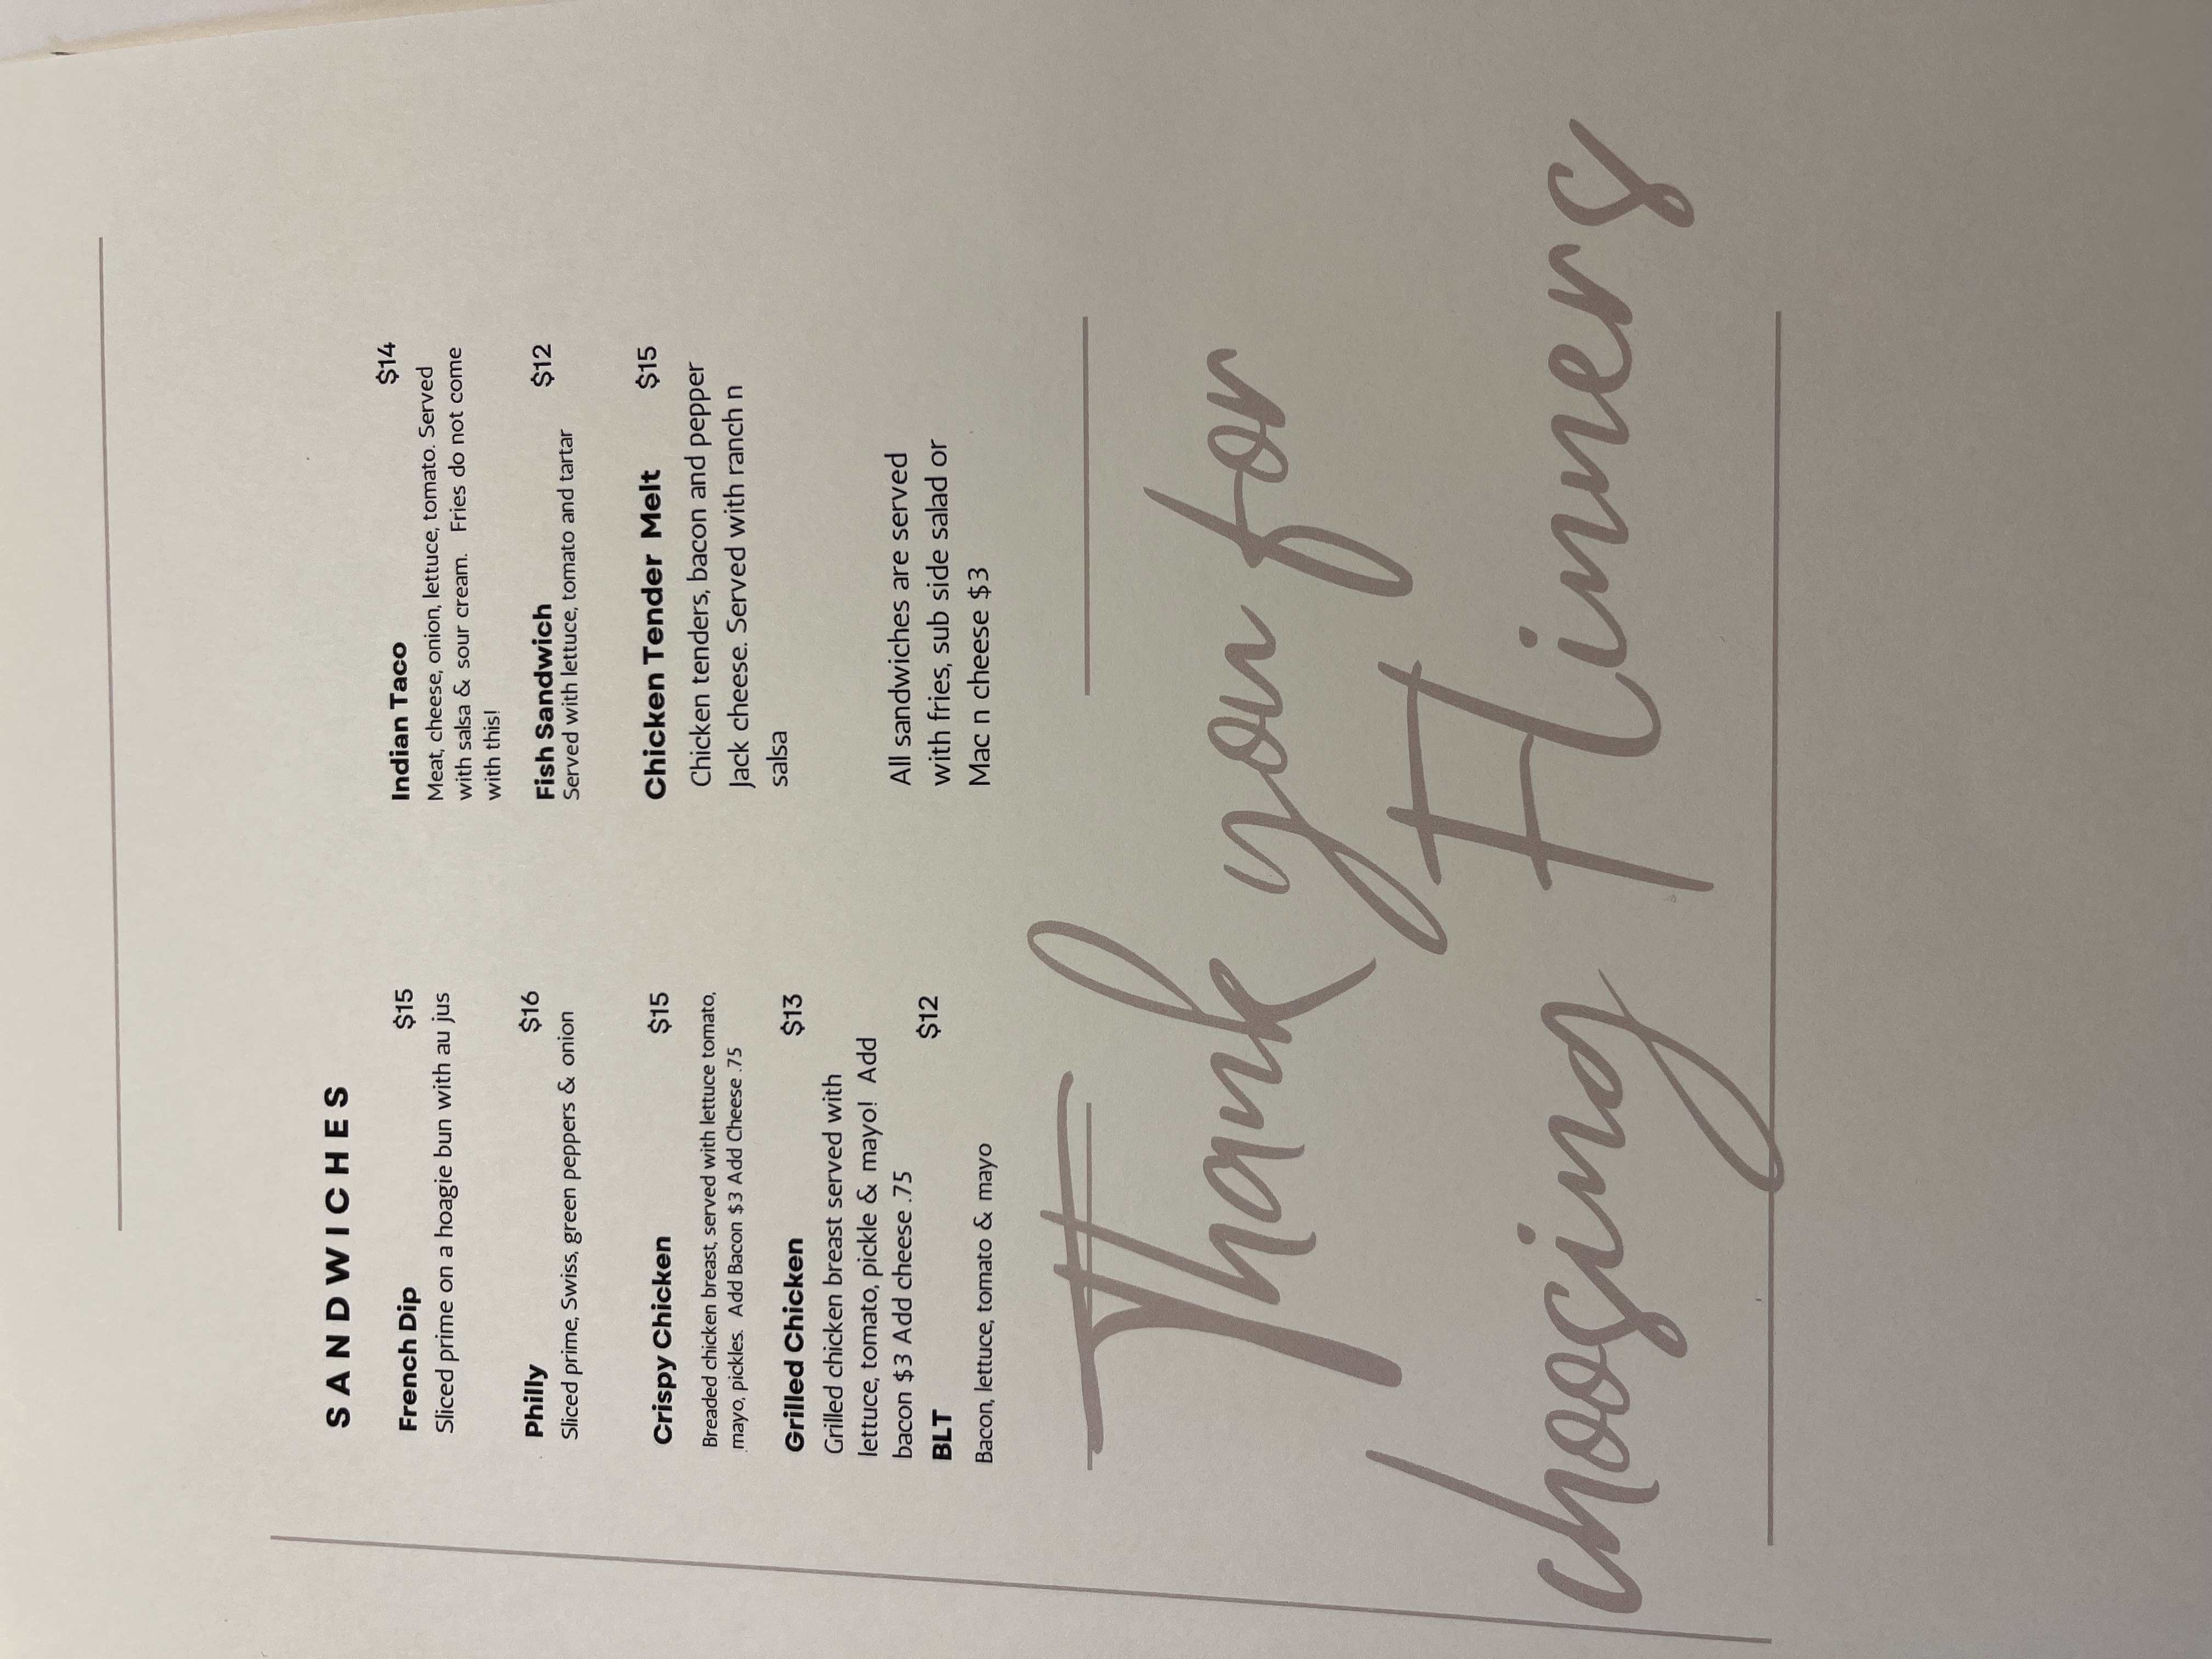 SANDWICHES
French Dip $15
Sliced prime on a hoagie bun with au jus
Philly $16
Sliced prime, Swiss, green peppers & onion
Crispy Chicken $15
Breaded chicken breast, served with lettuce tomato,
mayo, pickles. Add Bacon $3 Add Cheese .75
Grilled Chicken $13
Grilled chicken breast served with
lettuce, tomato, pickle & mayo! Add
bacon $3 Add cheese .75
BLT $12
Bacon, lettuce, tomato & mayo
Indian Taco $14
Meat, cheese, onion, lettuce, tomato. Served
with salsa & sour cream. Fries do not come
with this!
Fish Sandwich $12
Served with lettuce, tomato and tartar
Chicken Tender Melt $15
Chicken tenders, bacon and pepper
Jack cheese. Served with ranch n
salsa
All sandwiches are served
with fries, sub side salad or
Mac n cheese $3
Thank you for
choosing Hiners